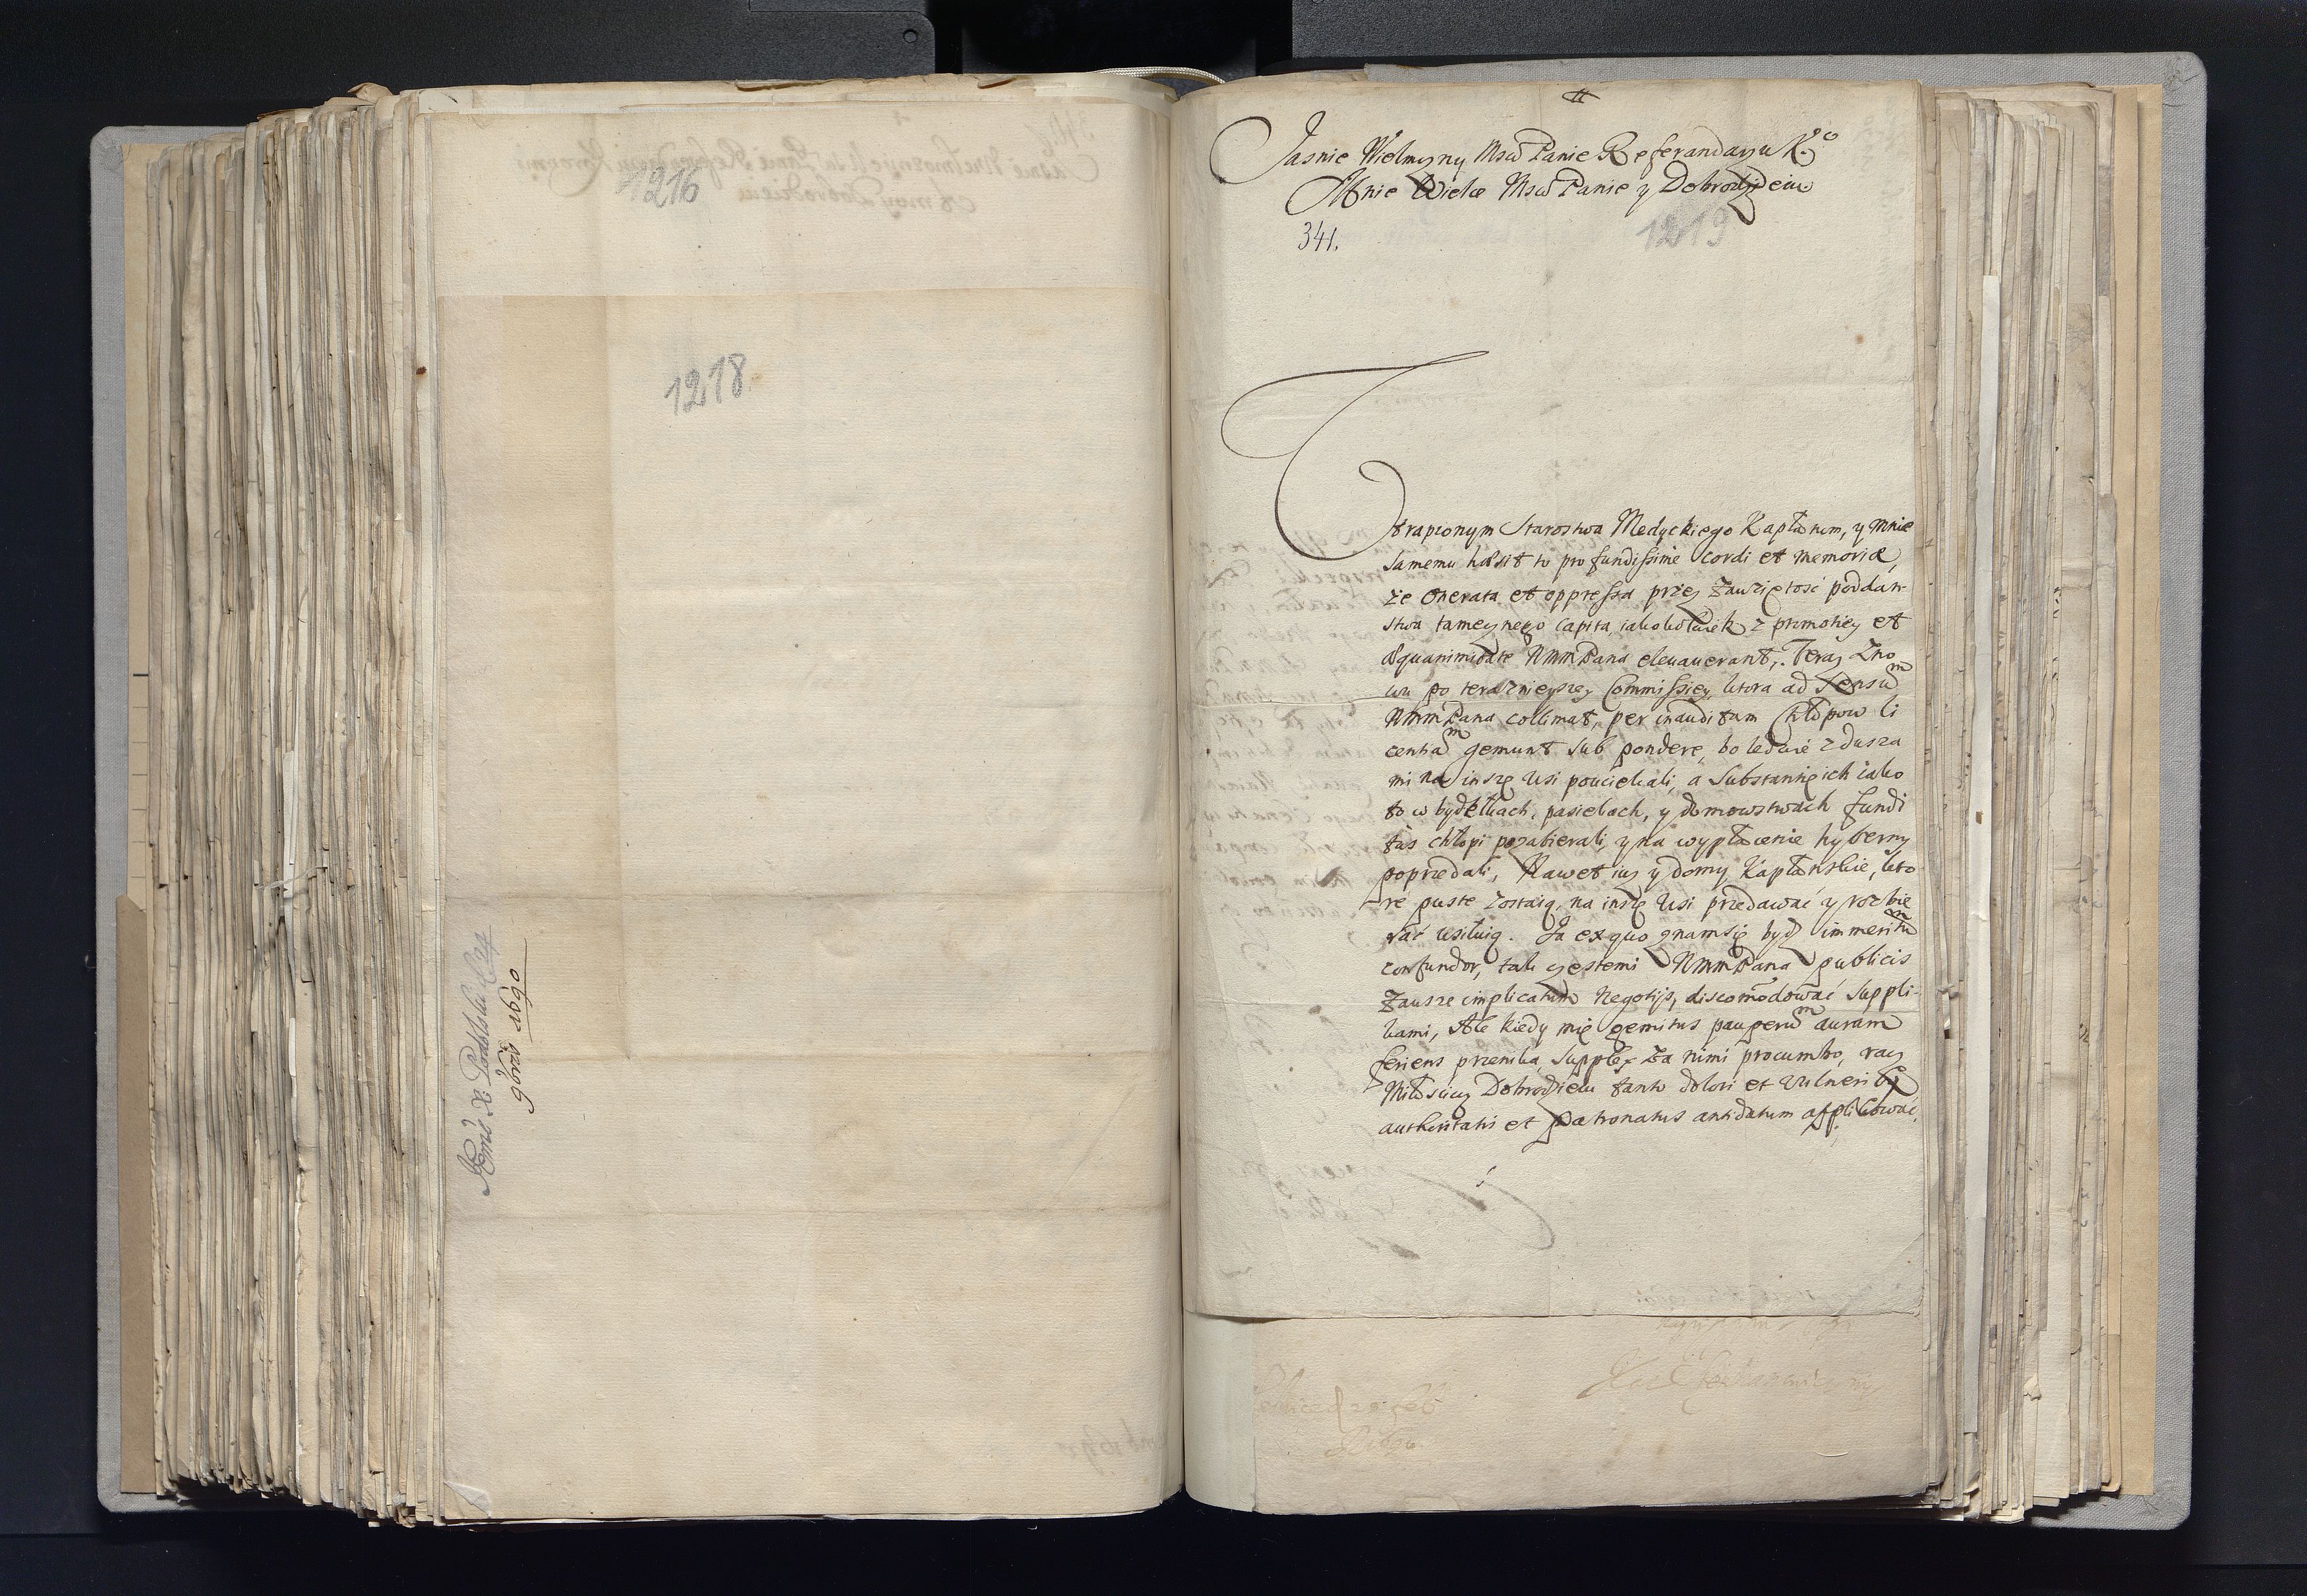 1216
1218
9bris 1690
Jasnie Wielmozny Msci Panie Referendarzu K:o
Mnie Wielce Msci Panie y Dobrodzieiu
341.
1219
Utrapionym Starostwa Medyckiego Kapłanom, y mnie
samemu hæsit to profundissime cordi et memoriæ,
że onerata et oppressa przez zawziętosć poddan
stwa tamecznego capita, iakokolwiek z promotiey et
æquanimitate WMMPana elevaverant, Teraz zno
wu po terazniejszey Commissiey, ktora ad Sensum
WMMPana collimat, per inauditam Chłopow li
centiam gemunt sub pondere, bo ledwie z dusza
mi na insze wsi pouciekali, a Substantię ich iako
to w bydełkach, pasiekach, y domowstwach fundi
tus chłopi pozabierali, y na wypłacenie hyberny
poprzedali, Nawet iuz y domy Kapłanskie, kto
re puste zostaią, na insze wsi przedawać y rozbie
rać usiłuią. Ja ex quo znam się bydz immeritum
confundor, tak częstemi WMMPana publicis
zawsze implicatum negotijs, discommodować suppli
kami, Ale kiedy mię gemitus pauperum auram
feriens przenika, supplex za nimi procumbo, racz
Miłosciwy Dobrodzieiu tanto dolori et vulneri
authoritatis et Patronatus antidatum applikować